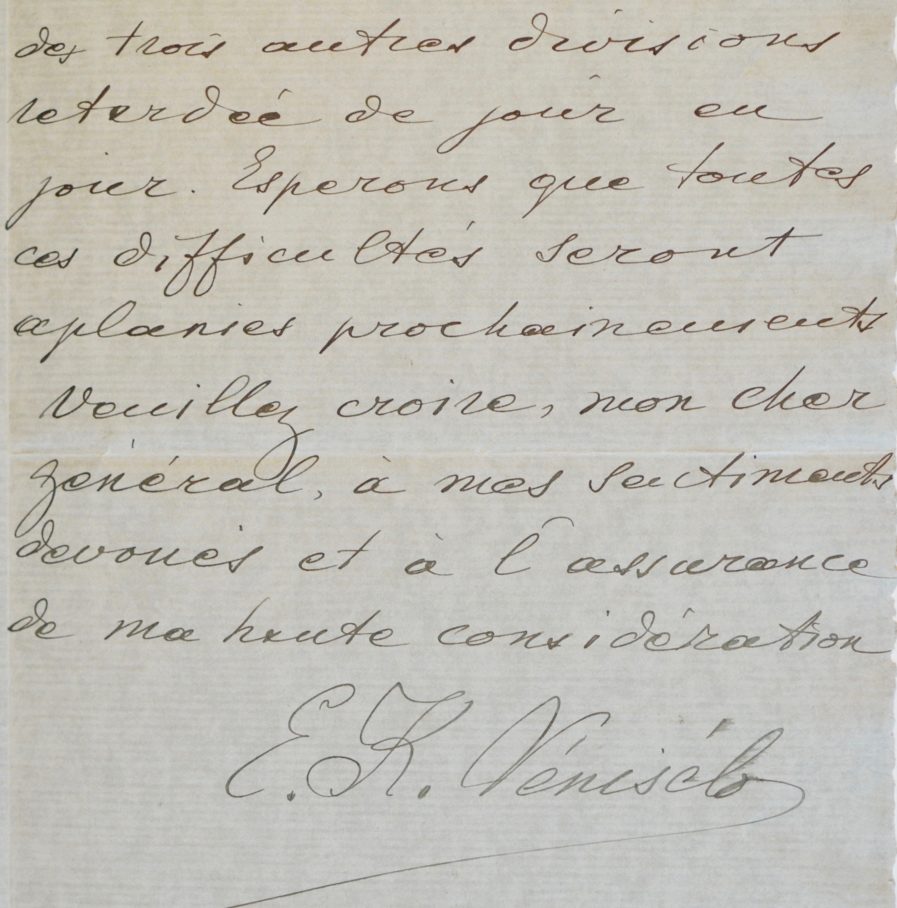 des trois autres divisions
reterdée de jour en
jour. Esperons que toutes
ces difficultés seront
aplanies prochainements
Veuillez croire, mon cher
général, à mes sentiments
devoués et à l'assurance
de ma haute considération
E. K. Vénisélo